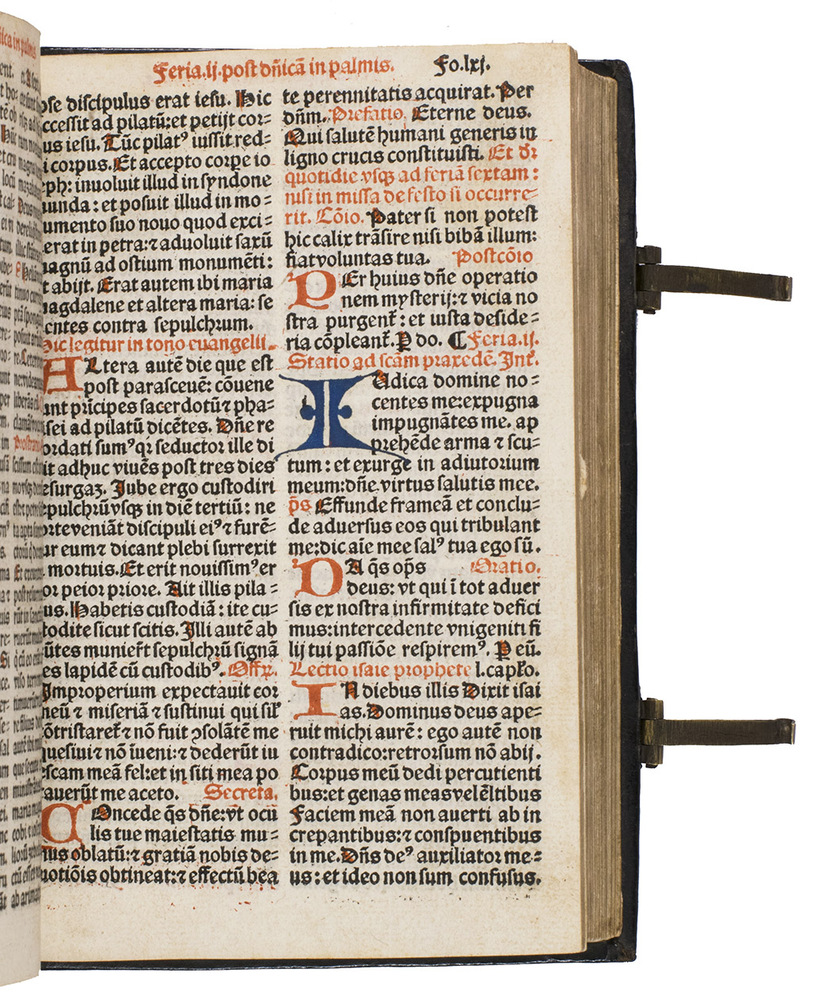 Feria.ij.post dñicā in palmis. Fo.lxj.
pse discipulus erat iesu. Hic
ccessit ad pilatū:et petijt cor=
us iesu. Tūc pilatꝰ iussit red=
i corpus. Et accepto corpe io
eph: inuoluit illud in syndone
munda: et posuit illud in mo=
umento suo nouo quod exci=
erat in petra:⁊ aduoluit saxū
magnū ad ostium monumēti:
t abijt. Erat autem ibi maria
magdalene et altera maria: se
entes contra sepulchrum.
Hic legitur in tono euangelii.
ALtera autē die que est
post parasceuē: cōuene
unt prīcipes sacerdotū ⁊ pha=
isei ad pilatū dicētes. Dñe re
ordati sumꝰ qꝛ seductor ille di
it adhuc viuēs post tres dies
resurgaꝫ. Jube ergo custodiri
epulchrū vsqꝫ in diē tertiū: ne
orte veniāt discipuli eiꝰ ⁊ furē=
ur eum ⁊ dicant plebi surrexit
mortuis. Et erit nouissimꝰ er
or peior priore. Ait illis pila=
us. Habetis custodiā: ite cu=
todite sicut scitis. Jlli autē ab
ūtes munierūt sepulchrū signā
es lapidē cū custodibꝰ. Offꝛ.
Jmproperium expectauit cor
meū ⁊ miseriā ⁊ sustinui qui sił
cōtristaret̄ ⁊ nō fuit ꝯsolātē me
quesiui ⁊ nō īueni:⁊ dederūt iu
escam meā fel:et in siti mea po
tauerūt me aceto. Secreta.
COncede q̄s dñe: vt ocu
lis tue maiestatis mu=
nus oblatū:⁊ gratiā nobis de=
uotiōis obtineat:⁊ effectū bea
te perennitatis acquirat. Per
dñm. Prefatio. Eterne deus.
Qui salutē humani generis in
ligno crucis constituisti. Et dr̄
quotidie vsqꝫ ad feriā sextam:
nisi in missa de festo si occurre=
rit. Cōio. Pater si non potest
hic calix trāsire nisi bibā illum:
fiat voluntas tua. Postcōio
PEr huius dñe operatio
nem mysterij:⁊ vicia no
stra purgent̄: et iusta deside=
ria cōpleant̄. P do. ¶ Feria.ij.
Statio ad scām praxedē. Int̄.
IUdica domine no=
centes me:expugna
impugnātes me. ap
prehēde arma ⁊ scu=
tum: et exurge in adiutorium
meum:dñe virtus salutis mee.
p̄s Effunde frameā et conclu=
de aduersus eos qui tribulant
me:dic aīe mee salꝰ tua ego sū.
DA q̄s op̄s Oratio.
deus: vt qui ī tot aduer
sis ex nostra infirmitate defici
mus:intercedente vnigeniti fi
lij tui passiōe respiremꝰ. P eū.
Lectio isaie prophete l.capło.
IN diebus illis Dixit isai
as. Dominus deus ape=
ruit michi aurē: ego autē non
contradico:retrorsum nō abij.
Corpus meū dedi percutienti
bus:et genas meas velēltibus
Faciem meā non auerti ab in
crepantibus:⁊ conspuentibus
in me. Dñs deꝰ auxiliator me=
us: et ideo non sum confusus.